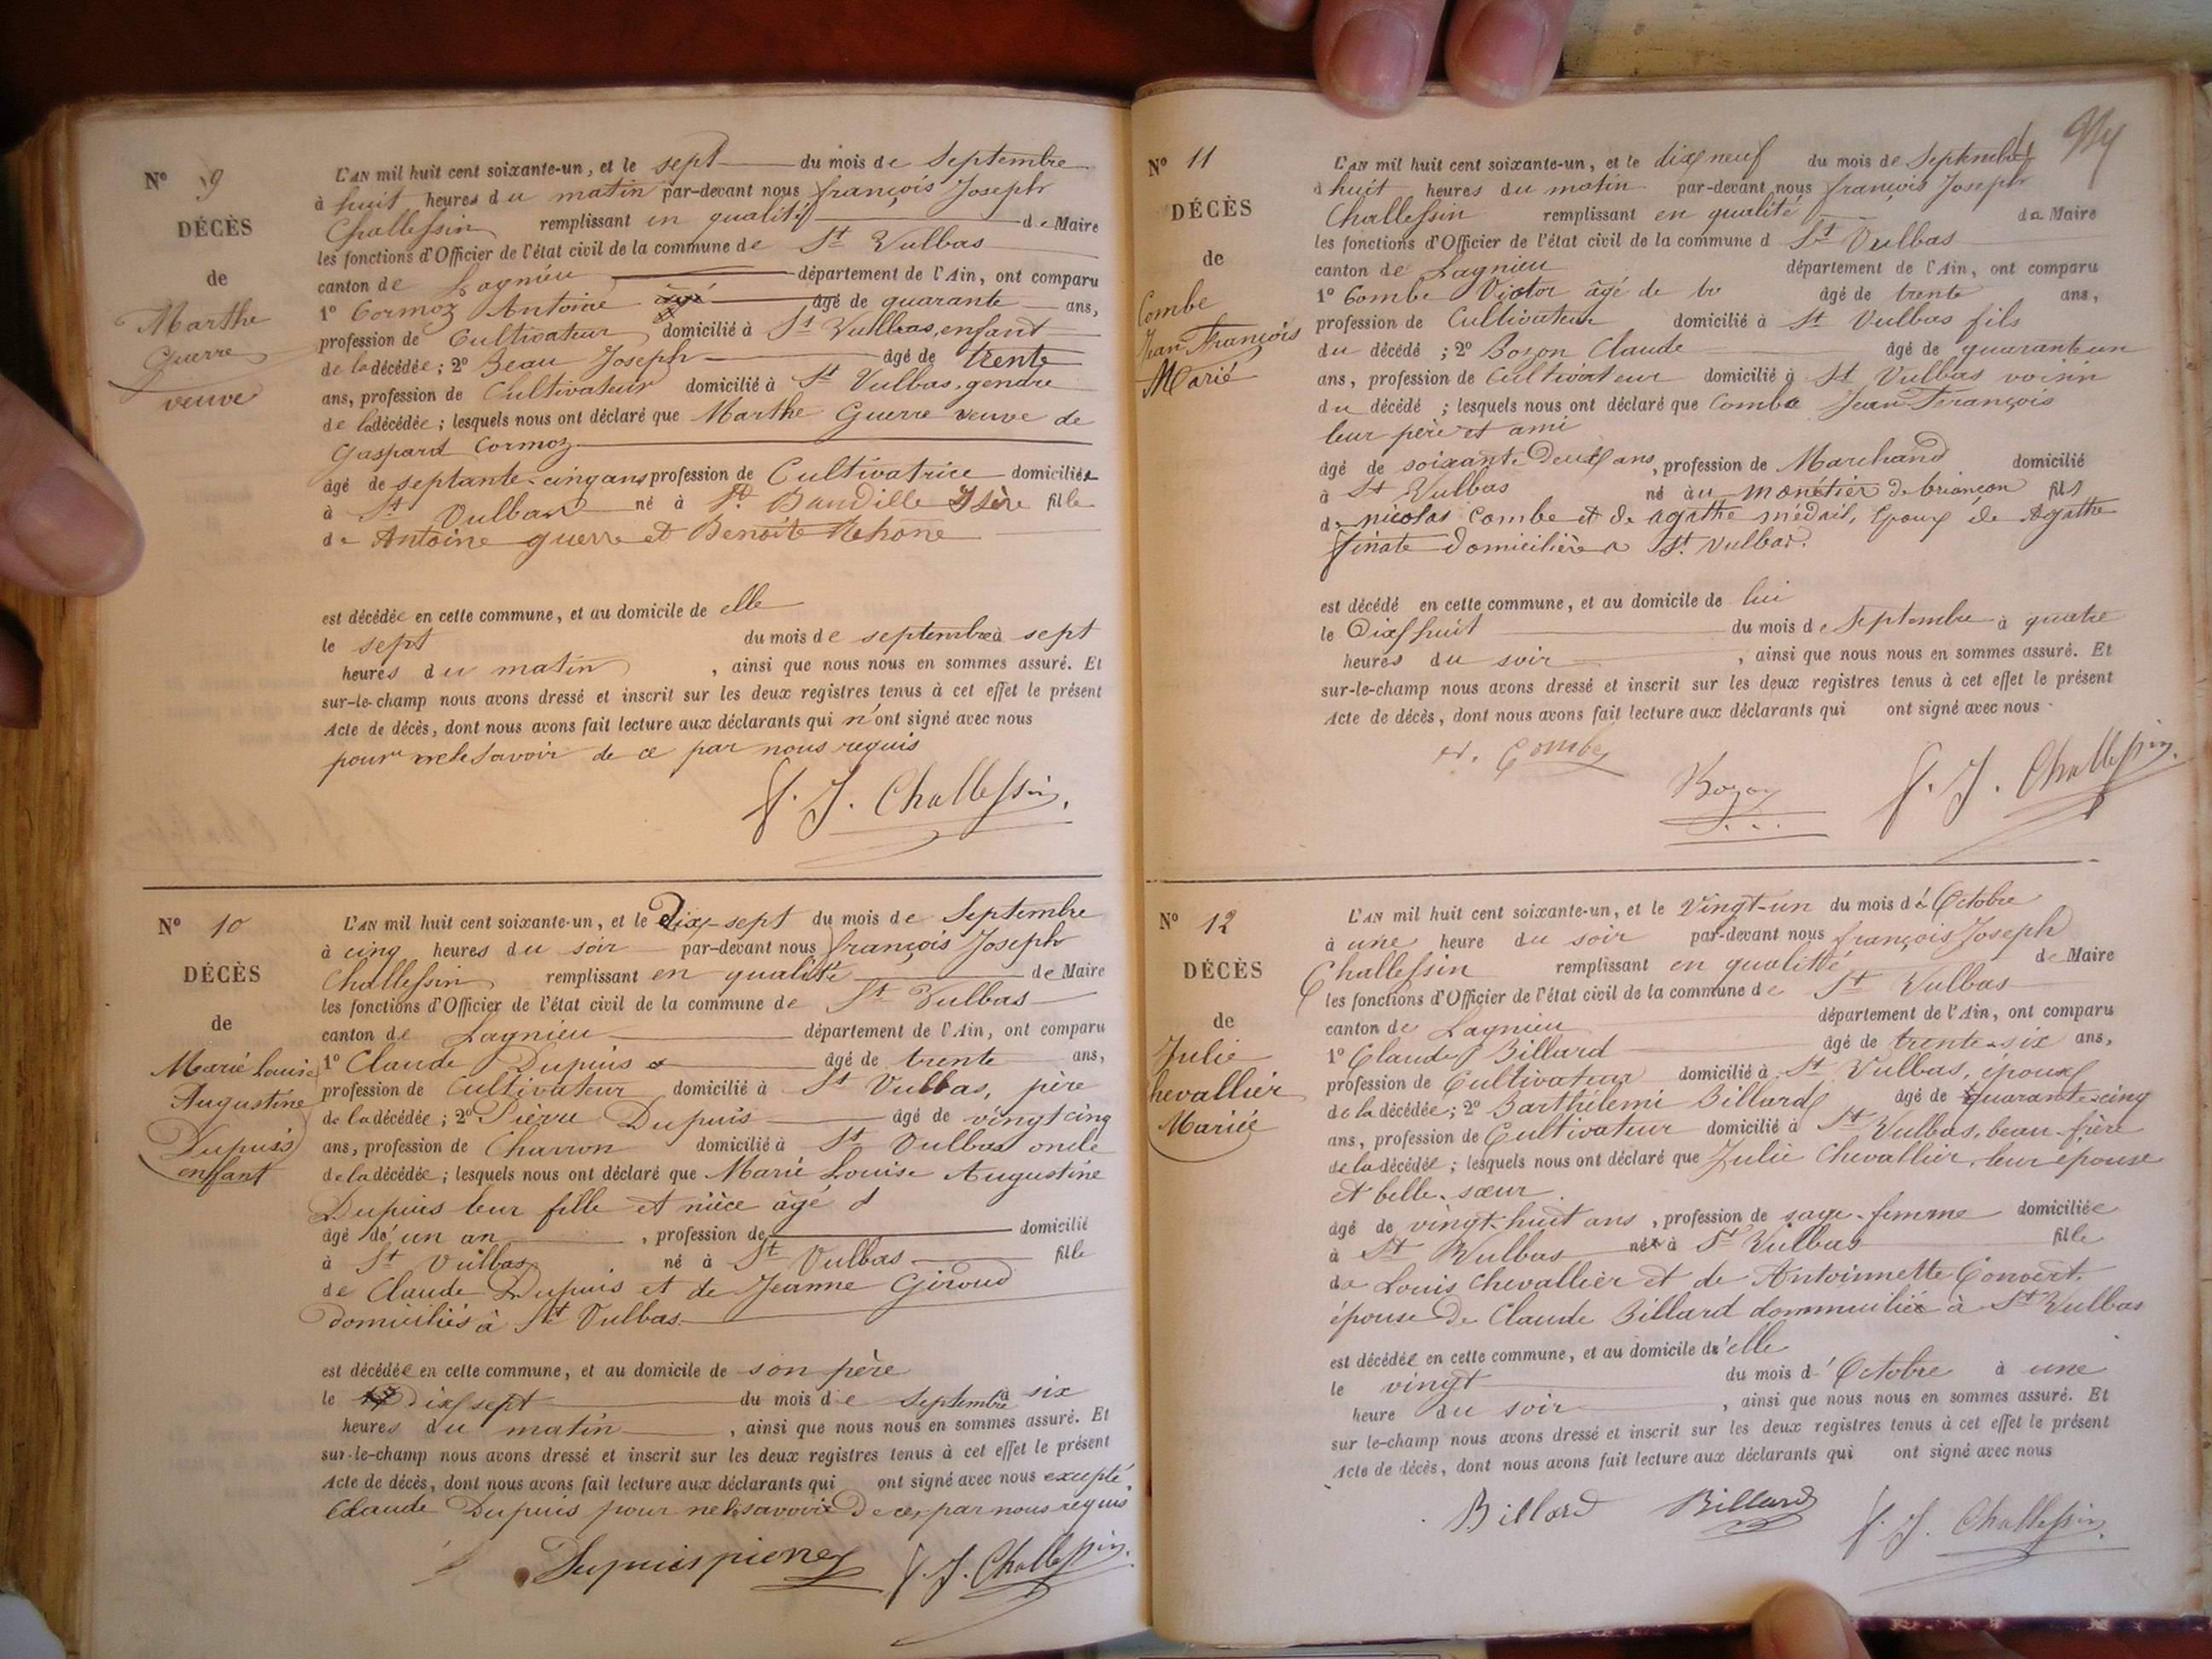 N° 9
DÉCÈS
de
Marthe
Guerre
veuve
L'AN mil huit cent soixante-un, et le sept du mois de Septembre
à huit heures du matin par-devant nous françois Joseph
Challessin remplissant en qualité de Maire
les fonctions d'Officier de l'état civil de la commune de St Vulbas
canton de Lagnieu département de l'Ain, ont comparu
1° Cormoz Antoine âgé de quarante ans,
profession de Cultivateur domicilié à St Vulbas, enfant
de la décédée; 2° Beau Joseph âgé de trente
ans, profession de Cultivateur domicilié à St Vulbas, gendre
de la décédée; lesquels nous ont déclaré que Marthe Guerre veuve de
Gaspard Cormoz
âgé de septante-cinq ans profession de Cultivatrice domiciliée
à St Vulbas né à St. Baudille Isère fille
de Antoine guerre et Benoite Rehone
est décédée en cette commune, et au domicile de elle
le sept du mois de septembre à sept
heures du matin, ainsi que nous nous en sommes assuré. Et
sur-le-champ nous avons dressé et inscrit sur les deux registres tenus à cet effet le présent
Acte de décès, dont nous avons fait lecture aux déclarants qui n'ont signé avec nous
pour ne le savoir de ce par nous requis
f. J. Challessin.
N° 10
DÉCÈS
de
Marie Louise
Augustine
Dupuis
enfant
L'AN mil huit cent soixante-un, et le Dix-sept du mois de Septembre
à cinq heures du soir par-devant nous françois Joseph
Challessin remplissant en qualité de Maire
les fonctions d'Officier de l'état civil de la commune de St Vulbas
canton de Lagnieu département de l'Ain, ont comparu
1° Claude Dupuis âgé de trente ans,
profession de Cultivateur domicilié à St Vulbas, père
de la décédée; 2° Pierre Dupuis âgé de vingt cinq
ans, profession de Charron domicilié à St Vulbas oncle
de la décédée; lesquels nous ont déclaré que Marie Louise Augustine
Dupuis leur fille et nièce âgé d
âgé de un an, profession de domicilié
à St Vulbas né à St Vulbas fille
de Claude Dupuis et de Jeanne Giroud
domiciliés à St Vulbas.
est décédée en cette commune, et au domicile de son père
le Dix sept du mois de Septembre à six
heures du matin, ainsi que nous nous en sommes assuré. Et
sur-le-champ nous avons dressé et inscrit sur les deux registres tenus à cet effet le présent
Acte de décès, dont nous avons fait lecture aux déclarants qui ont signé avec nous excepté
Claude Dupuis pour ne le savoir De ce, par nous requis
Dupuis pierre f. J. Challessin.
N° 11
DÉCÈS
de
Combe
Jean François
Marié
L'AN mil huit cent soixante-un, et le dix neuf du mois de Septembre
à huit heures du matin par-devant nous françois Joseph
Challessin remplissant en qualité de Maire
les fonctions d'Officier de l'état civil de la commune d St Vulbas
canton de Lagnieu département de l'Ain, ont comparu
1° Combe Victor âgé de tre âgé de trente ans,
profession de Cultivateur domicilié à St Vulbas fils
du décédé; 2° Bozon Claude âgé de quarante un
ans, profession de Cultivateur domicilié à St Vulbas voisin
du décédé; lesquels nous ont déclaré que Combe Jean François
leur père et ami
âgé de soixante Deux ans, profession de Marchand domicilié
à St Vulbas né au monétier de briançon fils
de nicolas Combe et de agathe médail, Epoux de Agathe
finate domicilière a St. Vulbas.
est décédé en cette commune, et au domicile de lui
le Dix huit du mois de Septembre à quatre
heures du soir, ainsi que nous nous en sommes assuré. Et
sur-le-champ nous avons dressé et inscrit sur les deux registres tenus à cet effet le présent
Acte de décès, dont nous avons fait lecture aux déclarants qui ont signé avec nous.
v. Combe Bozon f. J. Challessin.
N° 12
DÉCÈS
de
Julie
Chevallier
Mariée
L'AN mil huit cent soixante-un, et le Vingt-un du mois d'Octobre
à une heure du soir par-devant nous françois Joseph
Challessin remplissant en qualité de Maire
les fonctions d'Officier de l'état civil de la commune de St Vulbas
canton de Lagnieu département de l'Ain, ont comparu
1° Claude Billard âgé de trente-six ans,
profession de Cultivateur domicilié à St Vulbas, époux
de la décédée; 2° Barthélemi Billard âgé de quarante-cinq
ans, profession de Cultivateur domicilié à St Vulbas, beau-frère
de la décédée; lesquels nous ont déclaré que Julie Chevallier, leur épouse
et belle-sœur.
âgé de vingt-huit ans, profession de sage-femme domiciliée
à St Vulbas née à St Vulbas fille
de Louis Chevallier et de Antoinnette Convert.
épouse De Claude Billard dommiciliée à St Vulbas
est décédée en cette commune, et au domicile d'elle
le vingt du mois d'Octobre à une
heure du soir, ainsi que nous nous en sommes assuré. Et
sur le-champ nous avons dressé et inscrit sur les deux registres tenus à cet effet le présent
Acte de décès, dont nous avons fait lecture aux déclarants qui ont signé avec nous
Billard Billard f. J. Challessin.